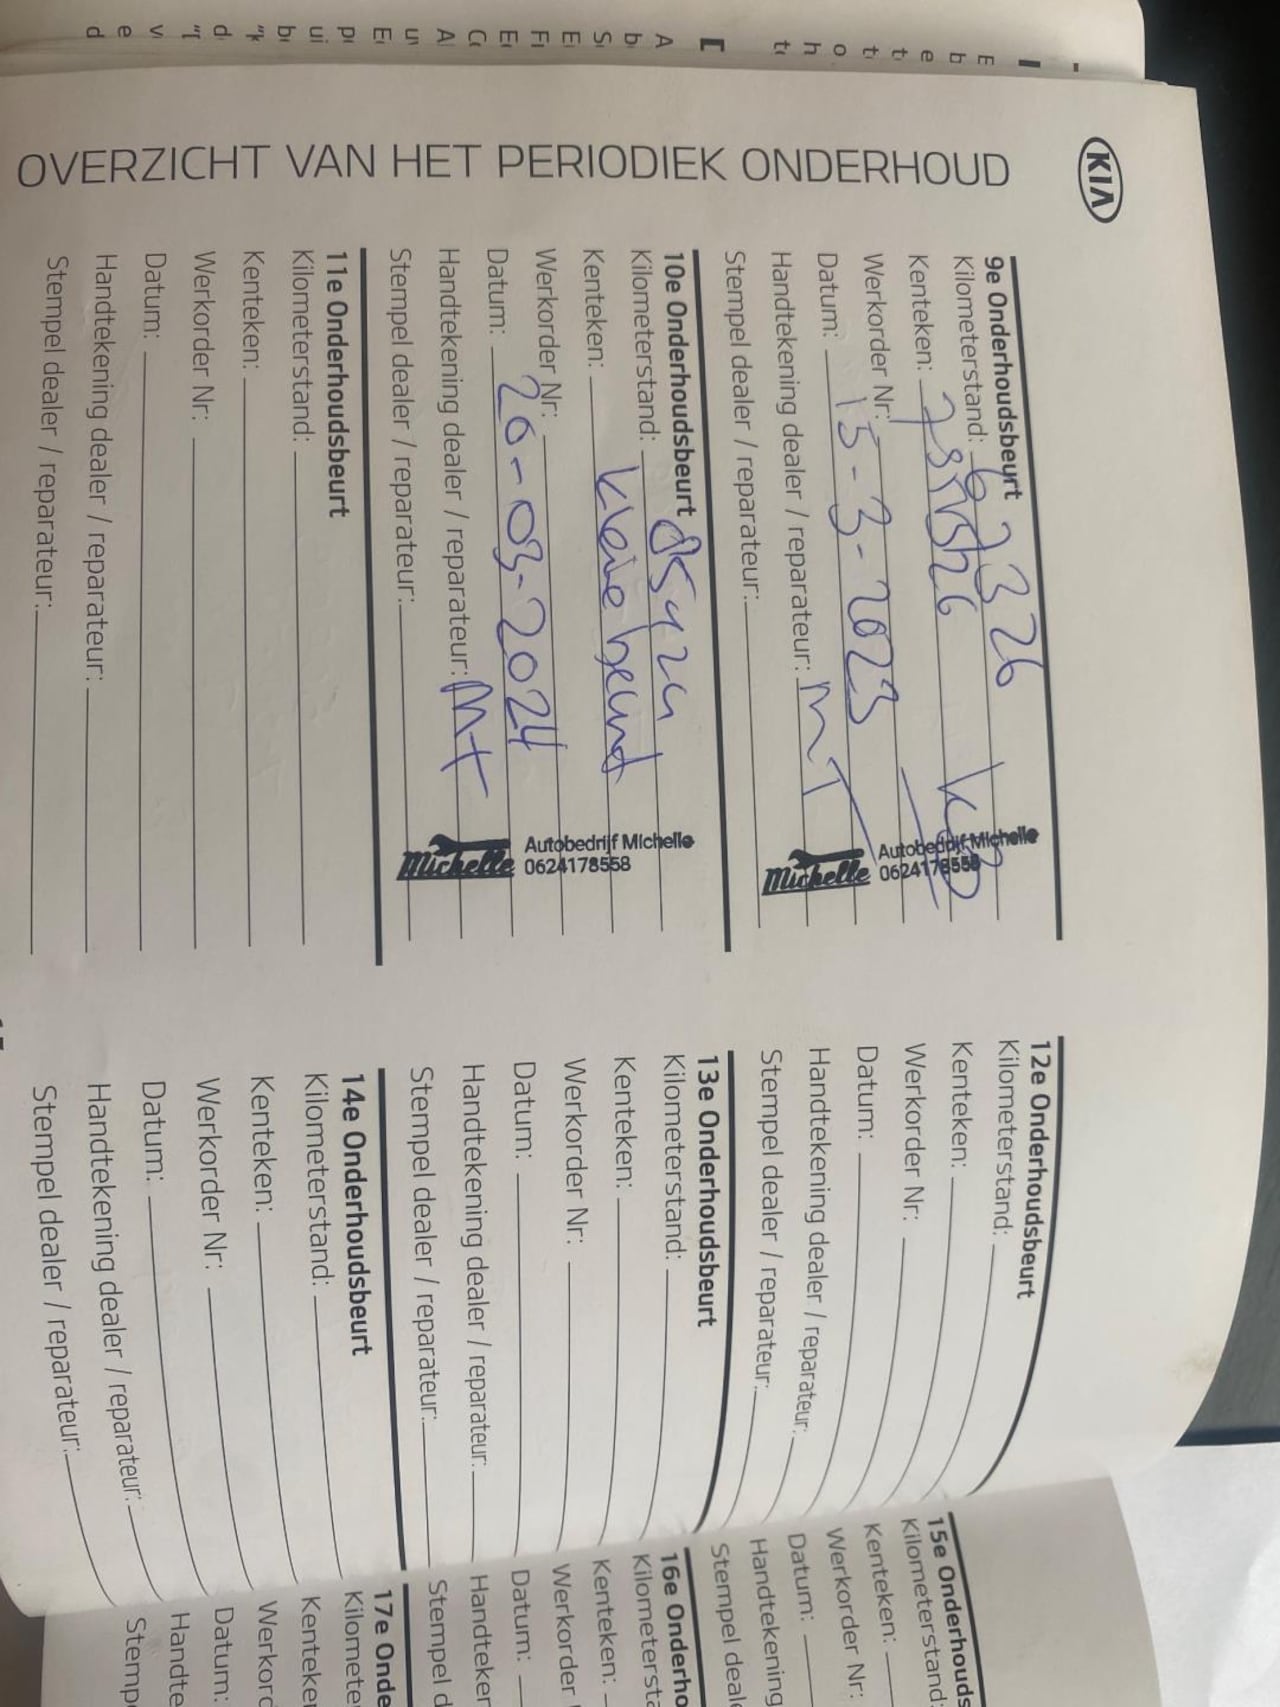 KIA
OVERZICHT VAN HET PERIODIEK ONDERHOUD
9e Onderhoudsbeurt
Kilometerstand: 67326
Kenteken:
Werkorder Nr:
Datum: 15-3-2023
Handtekening dealer / reparateur: MT
Stempel dealer / reparateur:
Autobedrijf Michelle
0624178558
Michelle
10e Onderhoudsbeurt
Kilometerstand: 85424
Kenteken: kleine beurt
Werkorder Nr:
Datum: 20-03-2024
Handtekening dealer / reparateur: Mt
Stempel dealer / reparateur:
Autobedrijf Michelle
0624178558
Michelle
11e Onderhoudsbeurt
Kilometerstand:
Kenteken:
Werkorder Nr:
Datum:
Handtekening dealer / reparateur:
Stempel dealer / reparateur:
12e Onderhoudsbeurt
Kilometerstand:
Kenteken:
Werkorder Nr:
Datum:
Handtekening dealer / reparateur:
Stempel dealer / reparateur:
13e Onderhoudsbeurt
Kilometerstand:
Kenteken:
Werkorder Nr:
Datum:
Handtekening dealer / reparateur:
Stempel dealer / reparateur:
14e Onderhoudsbeurt
Kilometerstand:
Kenteken:
Werkorder Nr:
Datum:
Handtekening dealer / reparateur:
Stempel dealer / reparateur:
15e Onderhouds
Kilometerstand:
Kenteken:
Werkorder Nr:
Datum:
Handtekening
Stempel deal
16e Onderho
Kilometersta
Kenteken:
Werkorder
Datum:
Handteker
Stempel d
17e Onde
Kilomete
Kenteke
Werkord
Datum:
Handte
Stemp